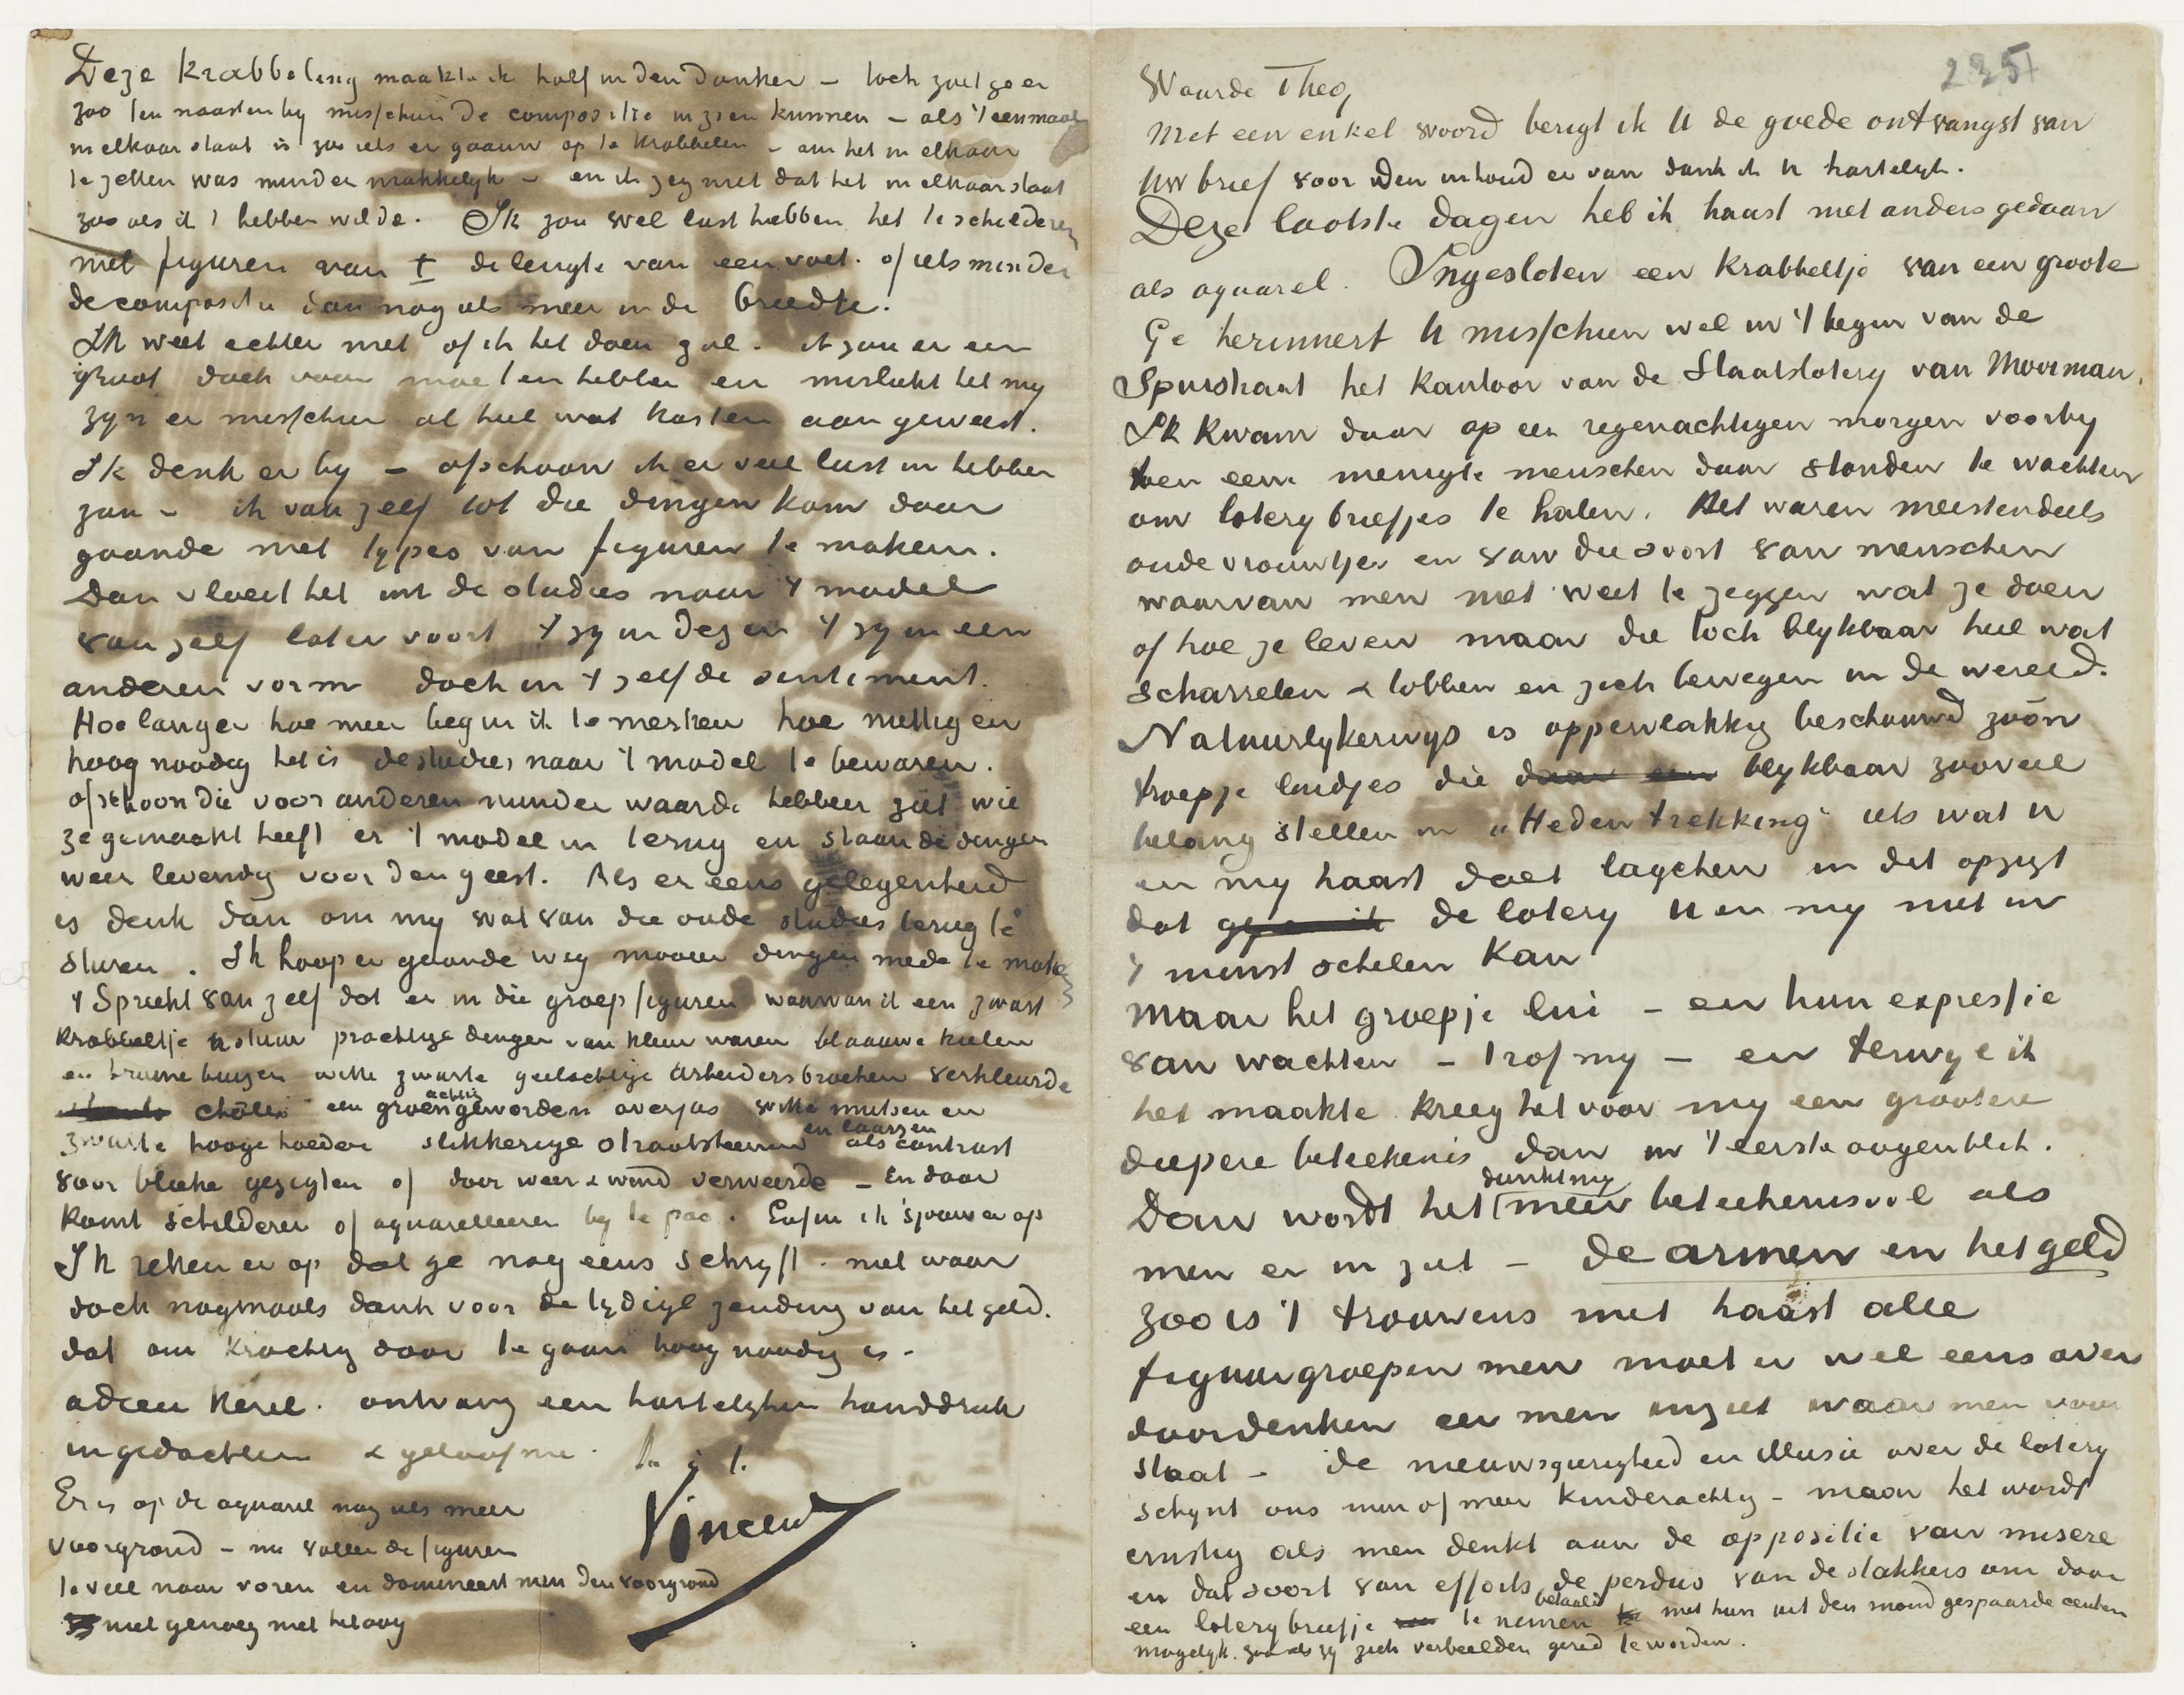 235
Waarde Theo,
Met een enkel woord berigt ik U de goede ontvangst van
Uw brief voor den inhoud er van dank ik U hartelijk.
Deze laatste dagen heb ik haast niet anders gedaan
als aquarel. Ingesloten een krabbeltje van een groote
Ge herinnert U misschien wel in 't begin van de
Spuistraat het kantoor van de Staatslotery van Mooiman.
Ik kwam daar op een regenachtigen morgen voorby
toen eene menigte menschen daar stonden te wachten
om lotery briefjes te halen. Het waren meestendeels
oude vrouwtjes en van die soort van menschen
waarvan men niet weet te zeggen wat ze doen
of hoe ze leven maar die toch blykbaar heel wat
scharrelen & tobben en zich bewegen in de wereld.
Natuurlykerwys is oppervlakkig beschouwd zoo'n
troepje luidjes die daar een blykbaar zooveel
belang stellen in „Heden trekking" iets wat U
en my haast doet lagchen in dit opzigt
dat gy en ik de lotery U en my niet in
't minst schelen kan
Maar het groepje lui – en hun expressie
van wachten – trof my – en terwyl ik
het maakte kreeg het voor my een grootere
diepere beteekenis dan in 't eerste oogenblik.
Dan wordt het dunkt my meer beteekenisvol als
men er in ziet – de armen en het geld
Zoo is 't trouwens met haast alle
figuurgroepen men moet er wel eens over
doordenken eer men inziet waar men voor
staat – de nieuwsgierigheid en illusie over de lotery
schynt ons min of meer kinderachtig – maar het wordt
ernstig als men denkt aan de oppositie van misere
en dat soort van efforts de perdus van de stakkers om door
een lotery briefje te nemen betaald met hun uit den mond gespaarde centen
mogelyk zooals zy zich verbeelden gered te worden.
Deze krabbeling maakte ik half in den donker – toch zult ge er
zoo ten naastenby misschien de compositie in zien kunnen – als 't eenmaal
in elkaar staat is zoo iets er gaauw op te krabbelen – om het in elkaar
te zetten was minder makkelyk – en ik zeg niet dat het in elkaar staat
zoo als ik 't hebben wilde. Ik zou wel lust hebben het te schilderen
met figuren van ± de lengte van een voet. of iets minder
de compositie dan nog iets meer in de breedte.
Ik weet echter niet of ik het doen zal. ik zou er een
groot doek voor moeten hebben en mislukt het my
zyn er misschien al heel wat kosten aan geweest.
Ik denk er by – ofschoon ik er veel lust in hebben
zou – ik van zelf tot die dingen kom door
gaande met types van figuren te maken.
Dan vloeit het uit de studies naar 't model
van zelf later voort 't zy in dezen 't zy in een
anderen vorm doch in 't zelfde sentiment.
Hoe langer hoe meer begin ik te merken hoe nuttig en
hoog noodig het is de studies naar 't model te bewaren.
ofschoon die voor anderen minder waarde hebben ziet wie
ze gemaakt heeft er 't model in terug en staan de dingen
weer levendig voor den geest. Als er eens gelegenheid
is denk dan om my wat van die oude studies terug te
sturen. Ik hoop er gaande weg mooier dingen mede te maken
't Spreekt van zelf dat er in die groep figuren waarvan ik een zwart
krabbeltje U stuur prachtige dingen van kleur waren blaauwe kielen
en bruine buizen witte zwarte geelachtige arbeidersbroeken verkleurde
châles een groenachtig geworden overjas witte mutsen en
zwarte hooge hoeden slikkerige straatsteenen en laarzen als contrast
voor bleeke gezigten of door weer & wind verweerde – En daar
komt schilderen of aquarelleeren by te pas. Enfin ik sjouw er op
Ik reken er op dat ge nog eens schryft. niet waar
doch nogmaals dank voor de tydige zending van het geld.
dat om krachtig door te gaan hoog noodig is.
adieu kerel. ontvang een hartelyken handdruk
in gedachten & geloof me. t. à t.
Vincent
Er is op de aquarel nog iets meer
voorgrond – nu vallen de figuren
te veel naar voren en domineert men den voorgrond
niet genoeg met het oog